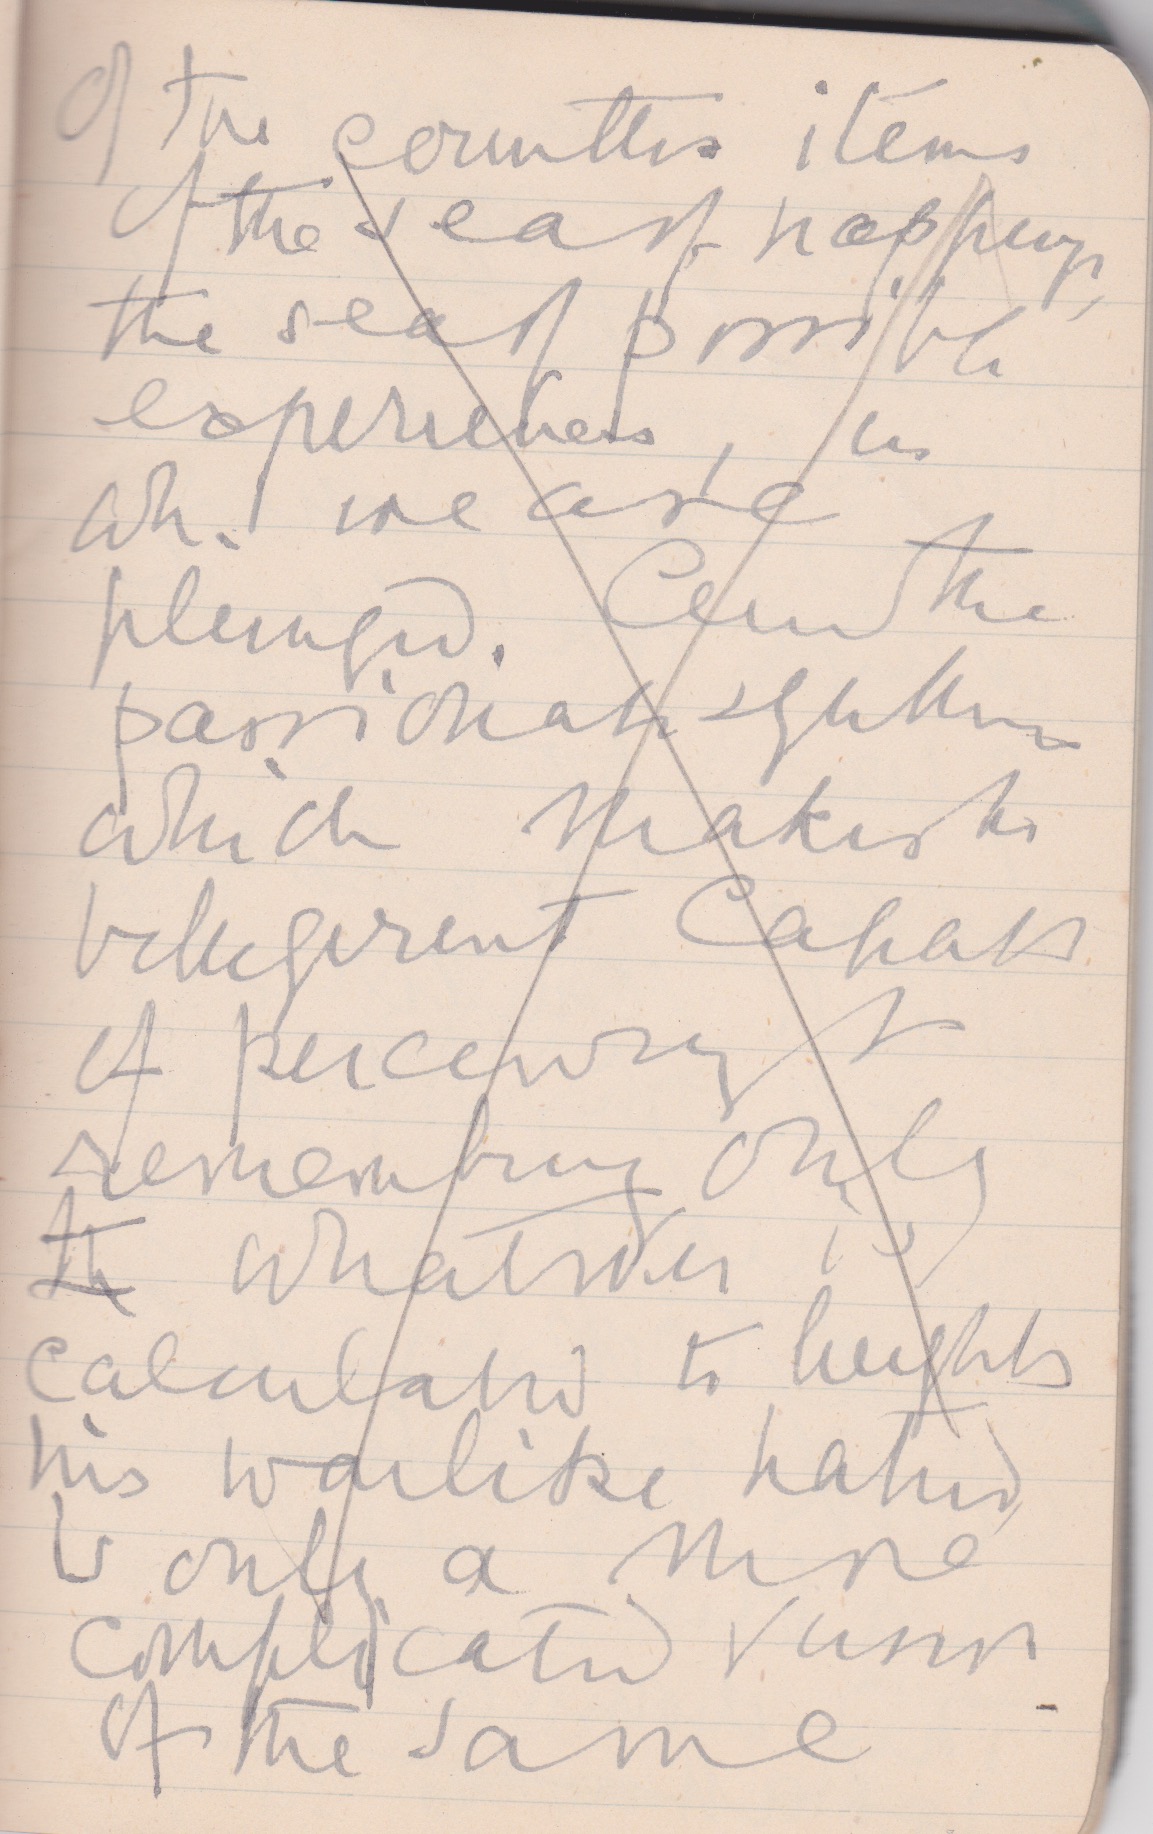 Of the countless items
of the sea of happenings,
the sea of possible
experiences, in
wh. we are
plunged. And the
passionate system
which makes the
belligerent capable
of perceiving &
remembering only
th whatever is
calculated to heighten
his warlike hatred
is only a more
complicated version
of the same